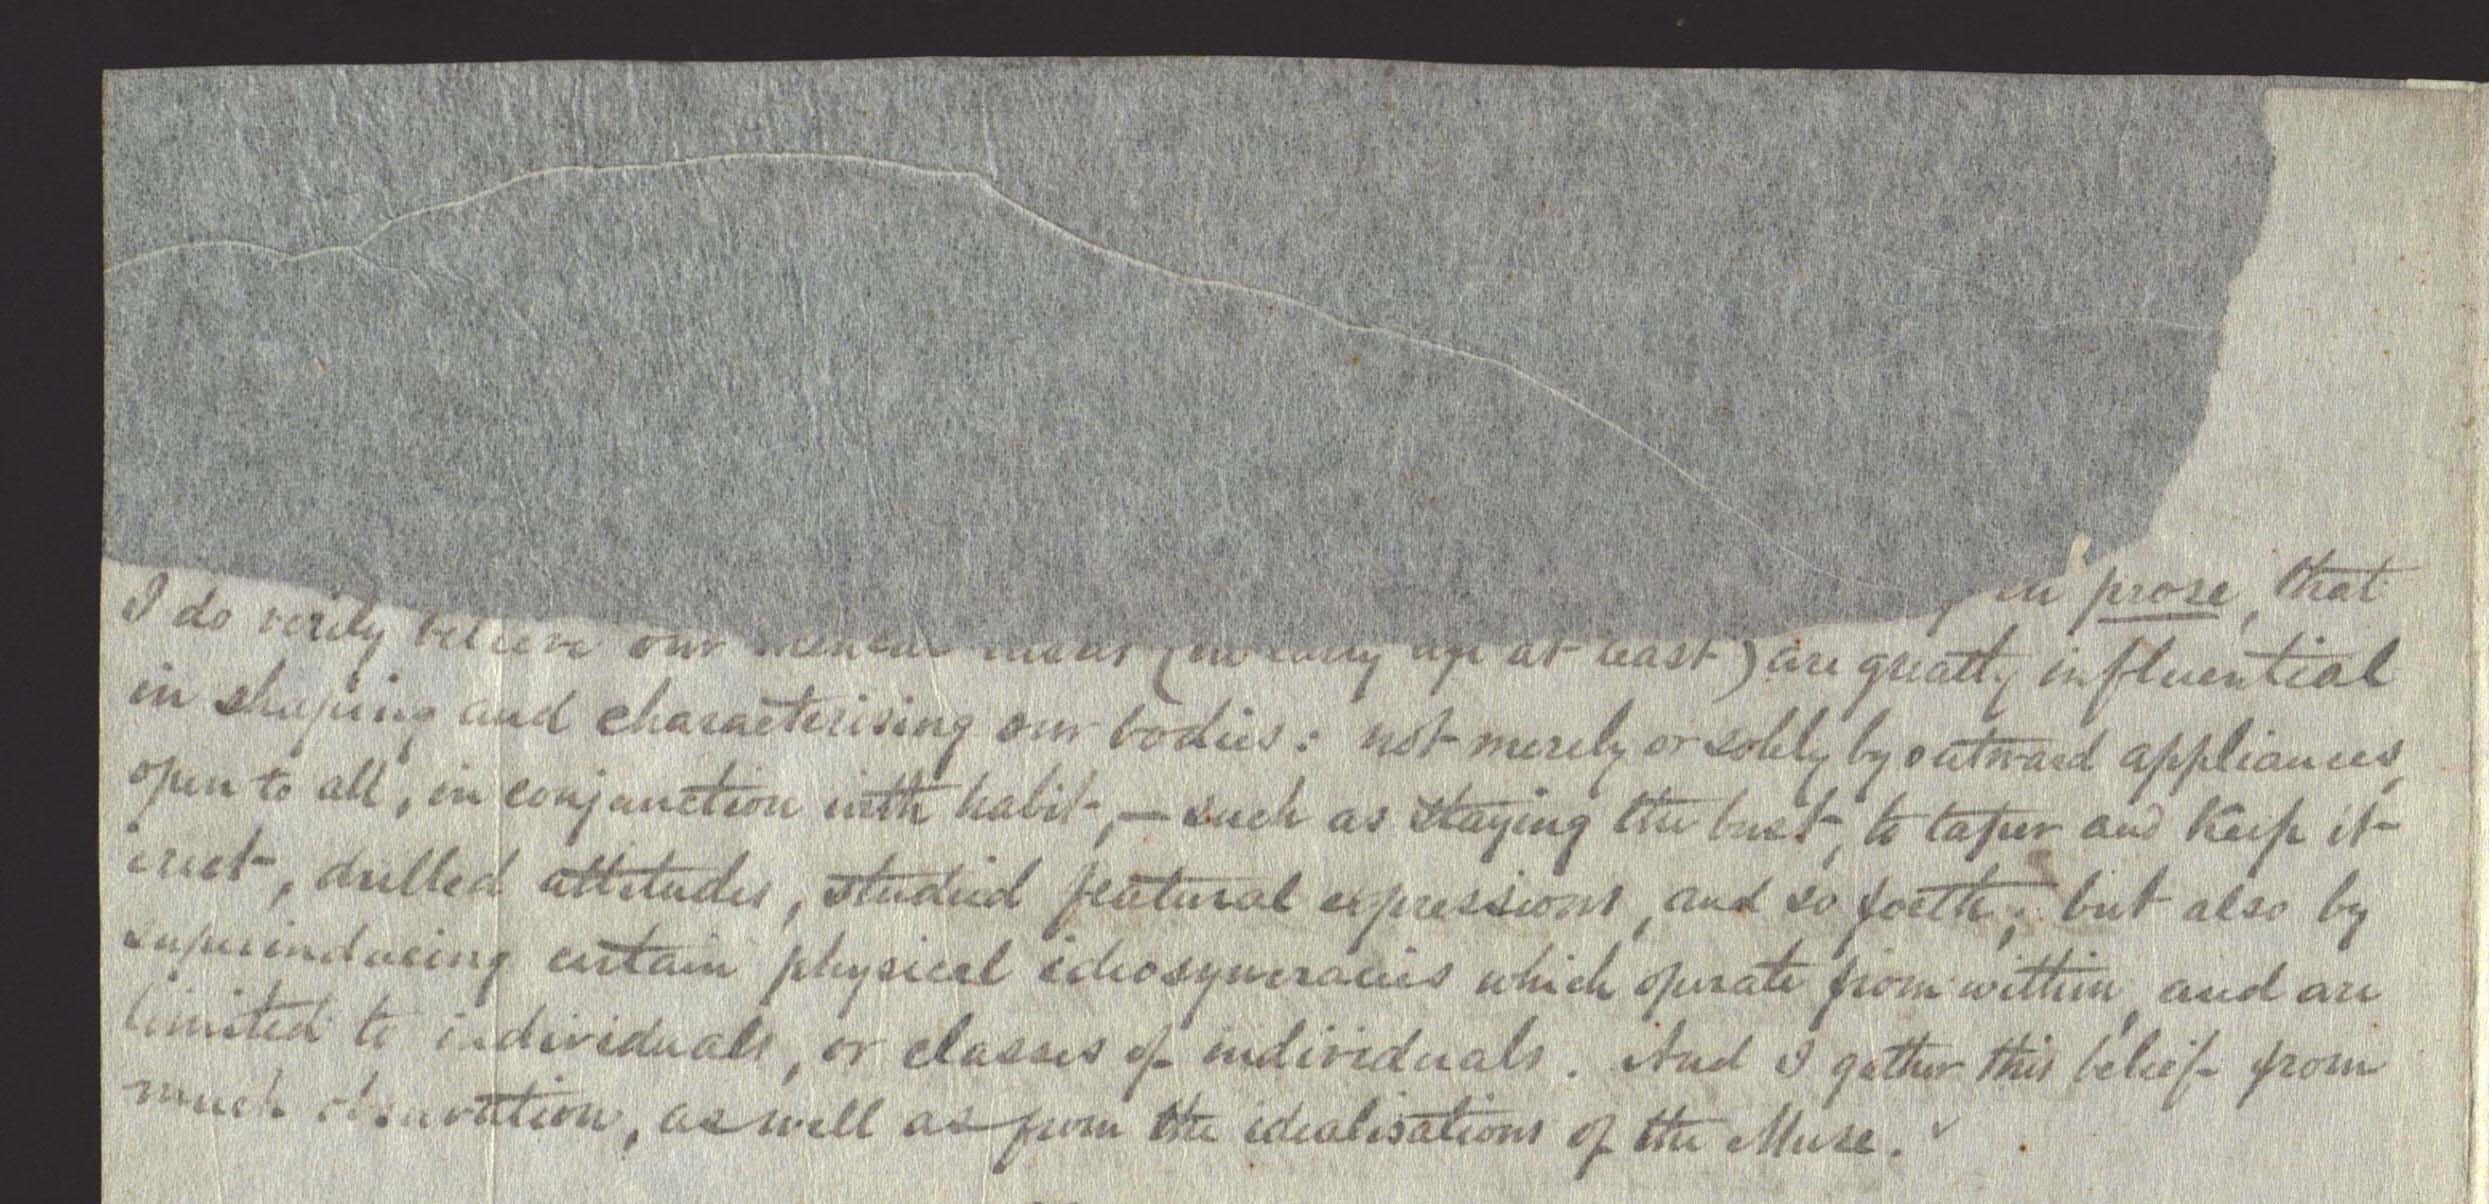 in prose, that
I do verily believe our mental ideas (in early age at least) are greatly influential
in shaping and characterising our bodies: not merely or solely by outward appliances,
open to all, in conjunction with habit, — such as staying the bust, to taper and keep it
erect, drilled attitudes, studied featural expressions, and so forth; but also by
superinducing certain physical ideosyncracies which operate from within, and are
limited to individuals, or classes of individuals. And I gather this belief from
much observation, as well as from the idealisations of the Muse.